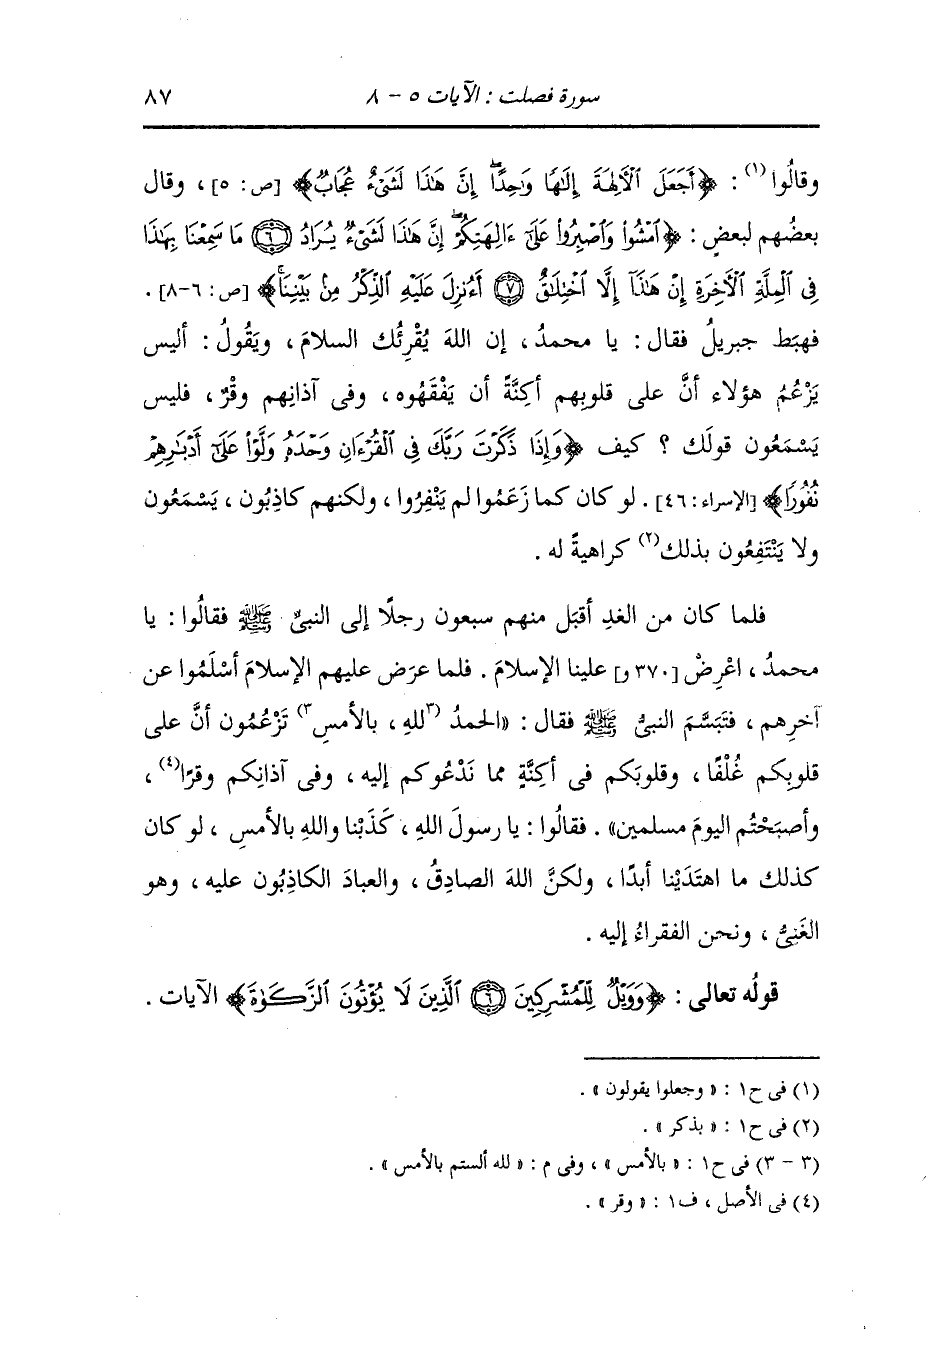 سورة فصلت : الآيات ٥ - ٨ ٨٧
وقالُوا(١) : ﴿أَجَعَلَ ٱلْأَلِهَةَ إِلَٰهًا وَٰحِدًاۖ إِنَّ هَٰذَا لَشَىْءٌ عُجَابٌ﴾ [ص: ٥] ، وقال
بعضُهم لبعضٍ : ﴿ٱمْشُواْ وَٱصْبِرُواْ عَلَىٰٓ ءَالِهَتِكُمْۖ إِنَّ هَٰذَا لَشَىْءٌ يُرَادُ ٦ مَا سَمِعْنَا بِهَٰذَا
فِى ٱلْمِلَّةِ ٱلْأَخِرَةِ إِنْ هَٰذَآ إِلَّا ٱخْتِلَٰقٌ ٧ أَءُنزِلَ عَلَيْهِ ٱلذِّكْرُ مِنۢ بَيْنِنَاۚ﴾ [ص: ٦-٨] .
فهبَط جبريلُ فقال : يا محمدُ ، إن اللهَ يُقْرِئُك السلامَ ، ويَقُولُ : أليس
يَزْعُمُ هؤلاء أنَّ على قلوبِهم أكِنَّةً أن يَفْقَهُوه ، وفى آذانِهم وقْرٌ ، فليس
يَسْمَعُون قولَك ؟ كيف ﴿وَإِذَا ذَكَرْتَ رَبَّكَ فِى ٱلْقُرْءَانِ وَحْدَهُۥ وَلَّوْاْ عَلَىٰٓ أَدْبَٰرِهِمْ
نُفُورًا﴾ [الإسراء : ٤٦] . لو كان كما زَعَمُوا لم يَنْفِرُوا ، ولكنهم كاذِبُون ، يَسْمَعُون
ولا يَنْتَفِعُون بذلك(٢) كراهيةً له .
فلما كان من الغدِ أقبَل منهم سبعون رجلًا إلى النبىِّ ﷺ فقالُوا : يا
محمدُ ، اعْرِضْ [٣٧٠و] علينا الإسلامَ . فلما عرَض عليهم الإسلامَ أسْلَمُوا عن
آخرِهم ، فتَبَسَّمَ النبىُّ ﷺ فقال : «الحمدُ (٣للهِ ، بالأمسِ٣) تَزْعُمُون أنَّ على
قلوبِكم غُلْفًا ، وقلوبَكم فى أكِنَّةٍ مما نَدْعُوكم إليه ، وفى آذانِكم وقرًا(٤) ،
وأصبَحْتُم اليومَ مسلمين» . فقالُوا : يا رسولَ اللهِ ، كَذَبْنا واللهِ بالأمسِ ، لو كان
كذلك ما اهتَدَيْنا أبدًا ، ولكنَّ اللهَ الصادِقُ ، والعبادَ الكاذِبُون عليه ، وهو
الغَنِىُّ ، ونحن الفقراءُ إليه .
قولُه تعالى : ﴿وَوَيْلٌ لِّلْمُشْرِكِينَ ٦ ٱلَّذِينَ لَا يُؤْتُونَ ٱلزَّكَوٰةَ﴾ الآيات .
(١) فى ح١ : « وجعلوا يقولون » .
(٢) فى ح١ : « بذكر » .
(٣ - ٣) فى ح١ : « بالأمس » ، وفى م : « لله ألستم بالأمس » .
(٤) فى الأصل ، ف١ : « وقر » .